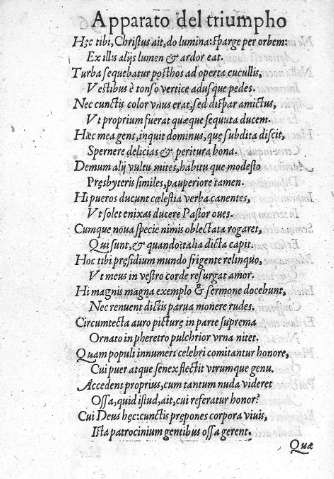 Apparato del triumpho
Hęc tibi, Christus ait, do lumina: sparge per orbem:
Ex illis alijs lumen & ardor eat.
Turba sequebatur post hos adoperta cucullis,
Vestibus è tonso vertice adusque pedes.
Nec cunctis color vnus erat, sed dispar amictus,
Vt proprium fuerat quæque sequuta ducem.
Hæc mea gens, inquit dominus, quæ subdita discit,
Spernere delicias & peritura bona.
Demum alij vultu mites, habitu que modesto
Pręsbyteris similes, pauperiore tamen.
Hi pueros ducunt celestia verba canentes,
Vt solet enixas ducere Pastor oues.
Cumque noua specie nimis oblectata rogaret,
Qui sunt, & quando italia dicta capit.
Hoc tibi presidium mundo frigente relinquo,
Vt meus in vestro corde resurgat amor.
Hi magnis magna exemplo & sermone docebunt,
Nec renuent dictis parua monere rudes.
Circumtecta auro picturæ in parte suprema
Ornato in pheretro pulchrior vrna nitet.
Quam populi innumeri celebri comitantur honore,
Cui puer atque senex flectit vtrumque genu.
Accedens proprius, cum tantum nuda videret
Ossa, quid istud, ait, cui referatur honor?
Cui Deus hęc: cunctis prępones corpora viuis,
Ista patrocinium gentibus ossa gerent.
Quæ